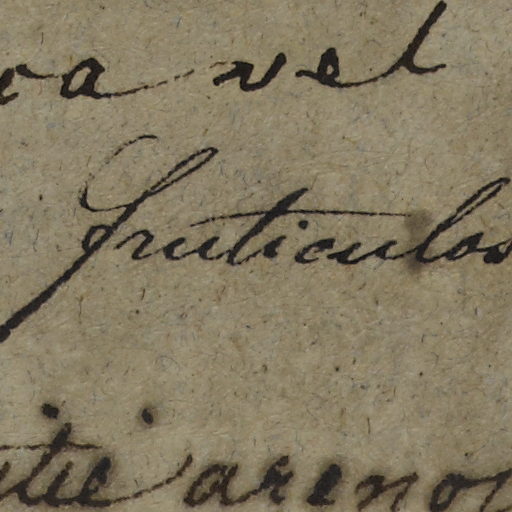 oa vel
fruticulos
itie areno